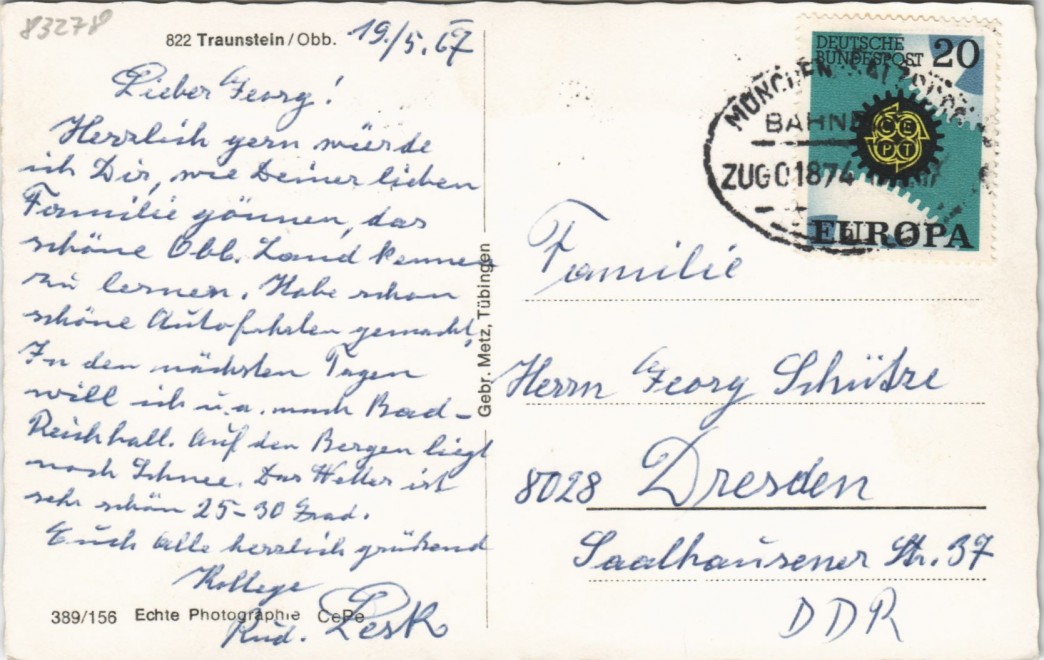 83278
822 Traunstein/Obb.
19./5.67
Lieber Georg!
Herrlich gern würde
ich Dir, wie Deiner lieben
Familie gönnen, das
schöne Obb. Land kennen
zu lernen. Habe schon
schöne Autofahrten gemacht.
In den nächsten Tagen
will ich u.a. nach Bad-
Reichhall. Auf den Bergen liegt
noch Schnee. Das Wetter ist
sehr schön 25-30 Grad.
Euch alle herzlich grüßend
Kollege
Rud. Pesk
389/156 Echte Photographie CePe
Gebr. Metz, Tübingen
DEUTSCHE
BUNDESPOST 20
CEPT
EUROPA
MÜNCHEN
BAHNP
ZUG 01874
Familie
Herrn Georg Schütze
8028 Dresden
Saalhausener Str. 37
DDR